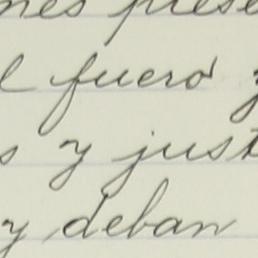 nes prese
l fuero y
s y just
y deban